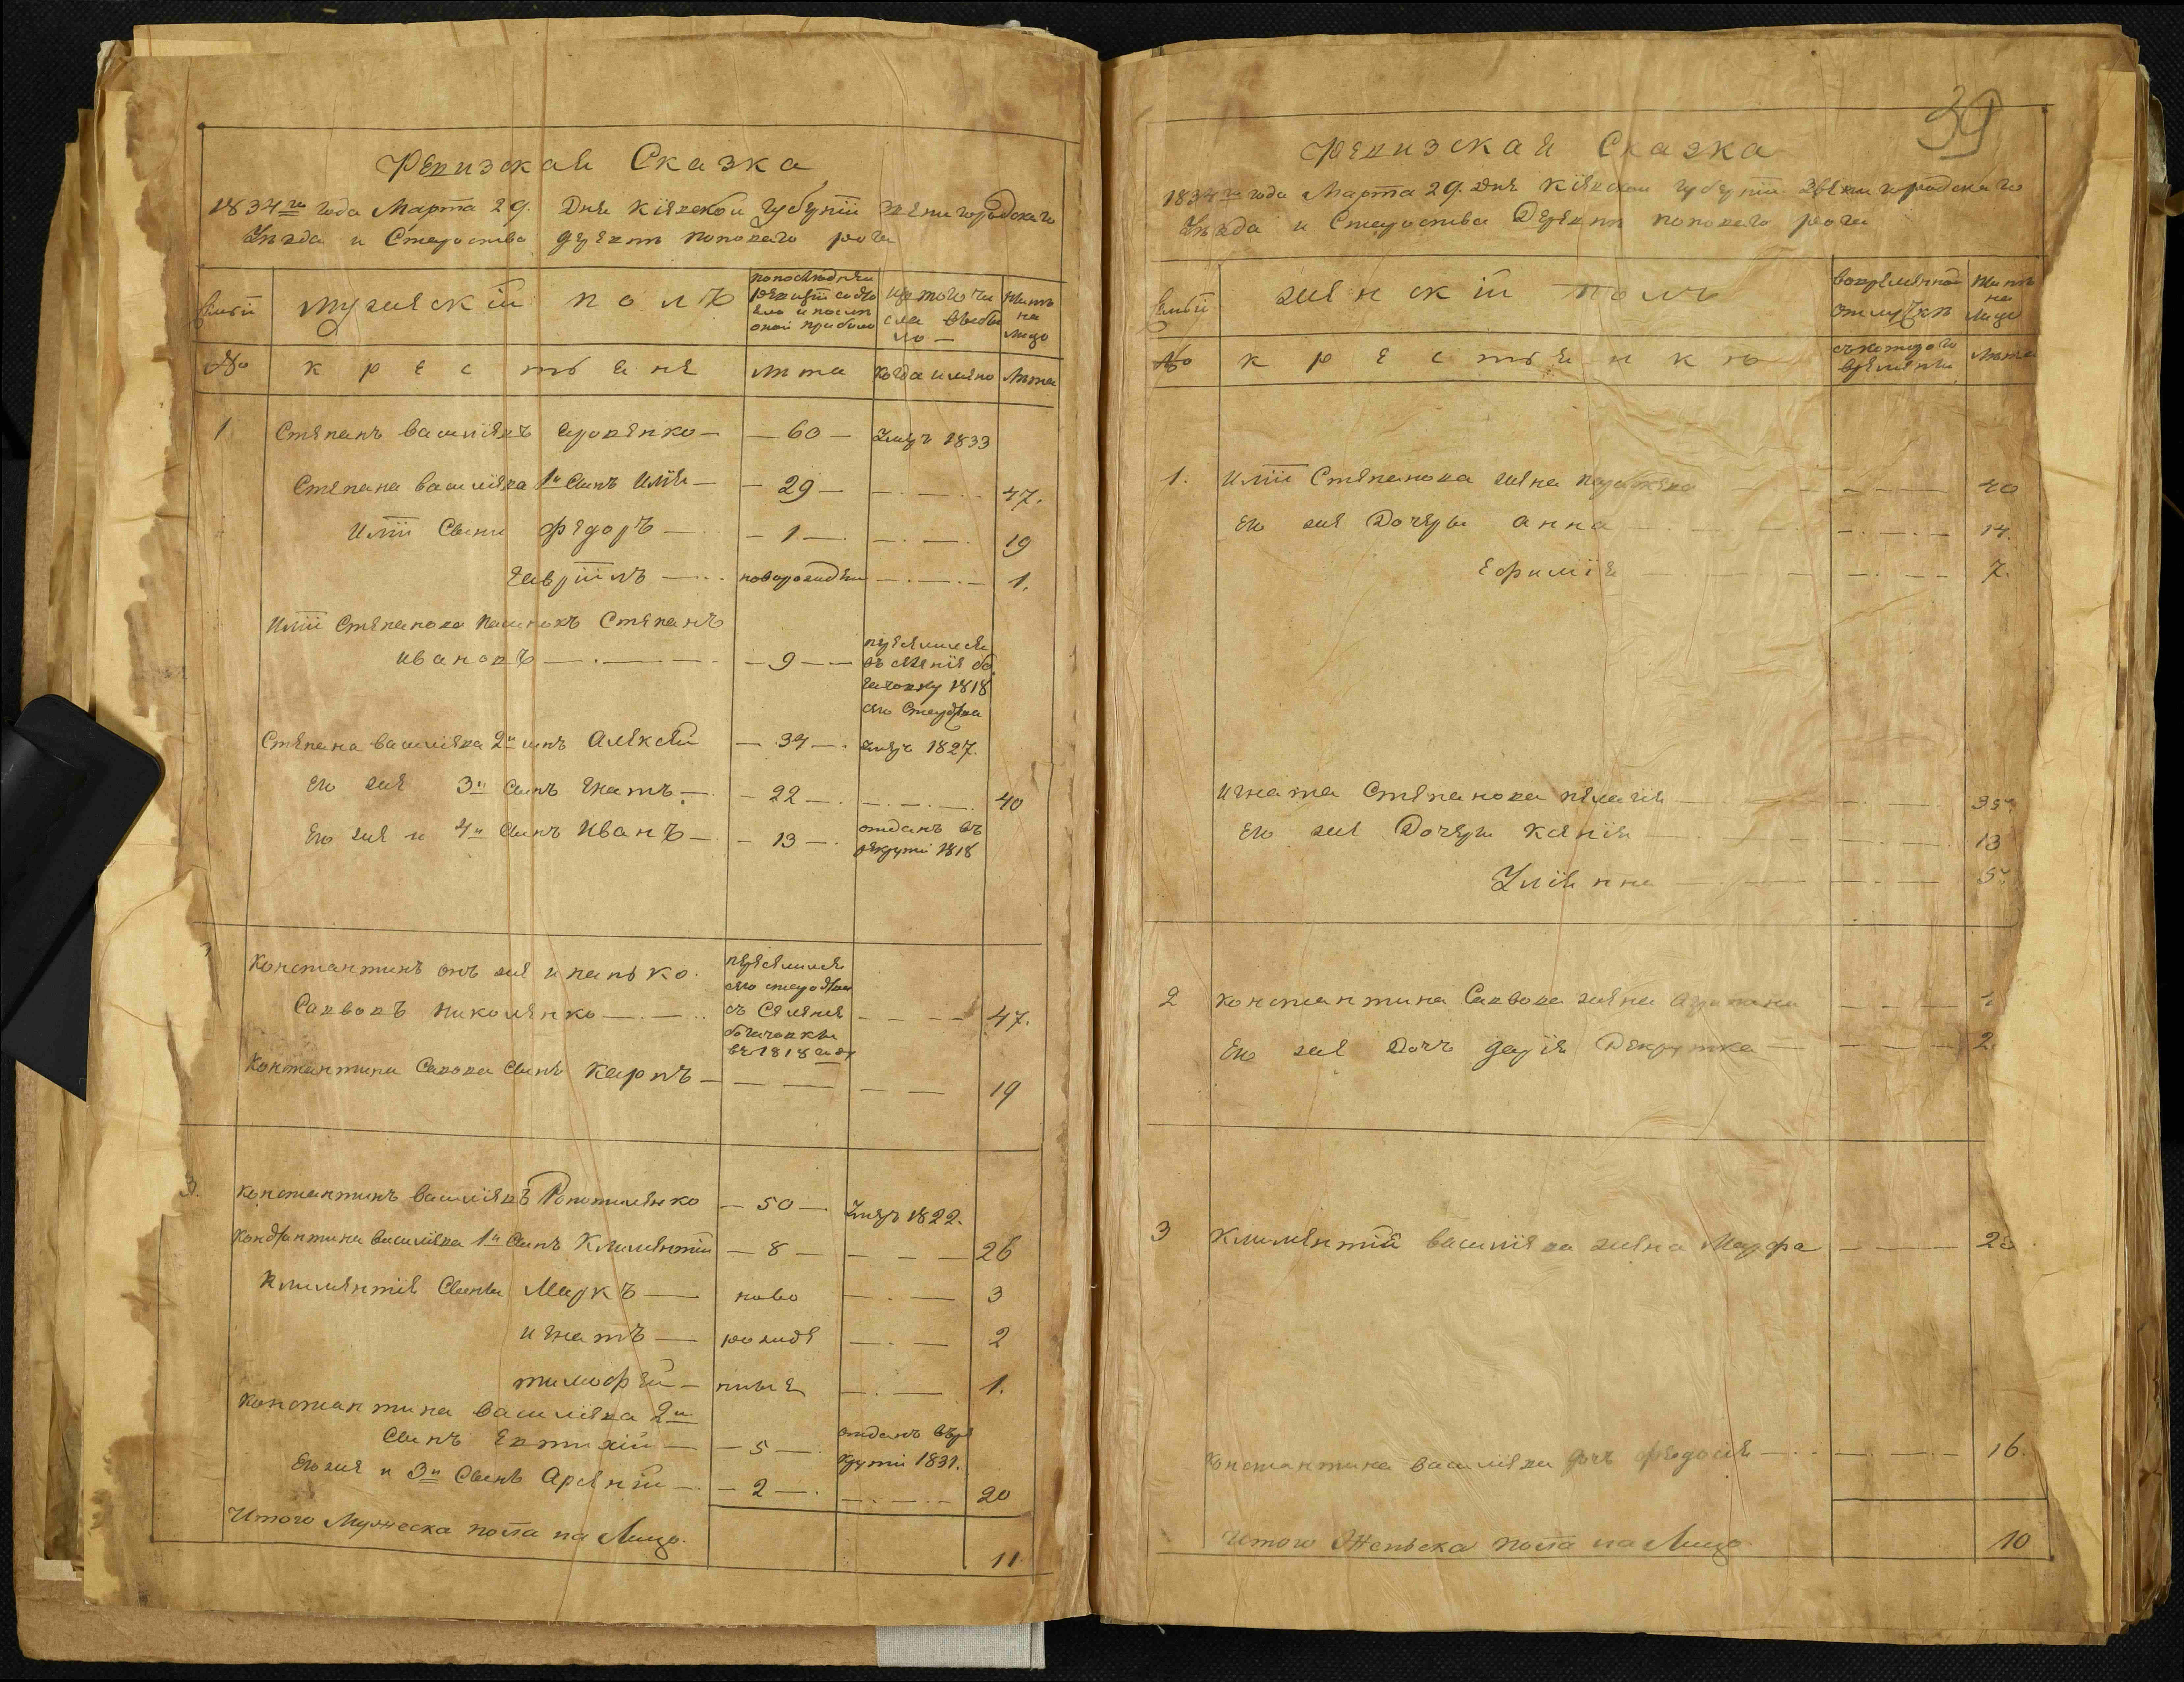 Ревизская Сказка
1834го года Марта 29. Дня Кіевской Губерніи Звенигородскаго
Уезда и Староства деревни Поповаго рога
Семьи
Мужескій полъ
по последней ревизіи состояло и после оной прибыло
изъ того числа выбыло
Ныне на лицо
№
крестьяне
лета
Когда имяно
Лета
1 Степанъ Василіевъ — 60 — Умеръ 1833
Степана Василіева 1й Сынъ Илія — 29 — 47.
Иліи Сыны Федоръ — 1 — 19
Гавріилъ — новорожден — 1.
Иліи Степанова Степанъ
Ивановъ — 9 — переселился
въ селеніе
1818
сего Староства
Степана Василіева 2й сынъ Алексей — 34 — умеръ 1827.
Его же 3й Сынъ Гнатъ — 22 — 40
Его же и 4й Сынъ Иванъ — 13 — отданъ въ
рекруты 1818
Константинъ онъ же и Панько.
Саввовъ Николенко — 47.
переселился
сего староства
съ Селенія
въ 1818 году
Константина Савова Сынъ Карпъ — 19
3. Константинъ Василіевъ — 50 — Умеръ 1822.
Константина Василіева 1й Сынъ Климентій — 8 — 26
Климентія Сыны Маркъ — ново 3
Игнатъ — рожде 2
Тимофей — ныіе 1.
Константина Василіева 2й
Сынъ Евтихій — 5 — отданъ въ ре
круты 1831.
Его же и 3й Сынъ Арсеній — 2 — 20
Итого Мужеска пола на Лицо. 11
39
Ревизская Сказка
1834го года Марта 29. Дня Кіевской Губерніи Звенигородскаго
Уезда и Староства Деревни Поповаго рога
Семьи
женскій полъ
во временной отлучке
Ныне на лицо
№
крестьянки
съ котораго времени
Лета
1. Иліи Степанова жена 40
Его же Дочеры Анна — 14.
Ефимія — 7.
Игната Степанова Пелагія — 35
Его же Дочеры Ксенія — 13
Уліянна — 5
2 Константина Саввова жена
Его же Дочъ Дарія 2
3 Климентій Василіева жена Марфа — 20
Константина Василіева дочъ Феодосія — 16.
Итого Женьска пола на Лицо 10